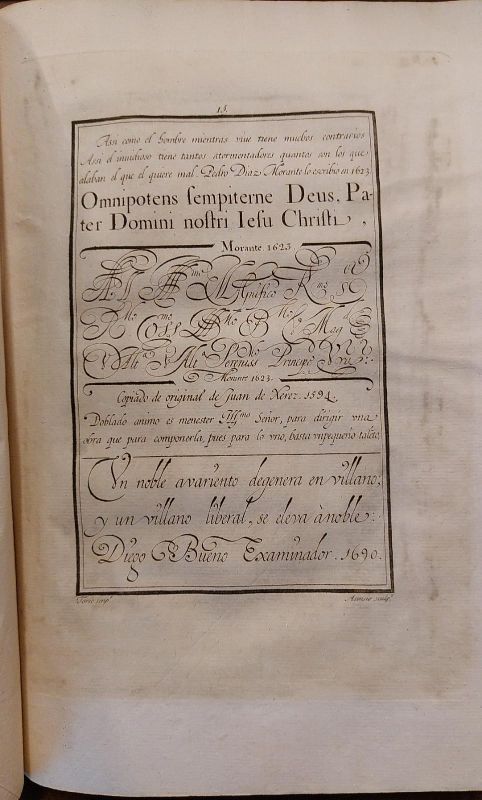 15.
Asi como el hombre mientras viue tiene muchos contrarios
Assi el inuidioso tiene tantos atormentadores quantos son los que
alaban el que el quiere mal. Pedro Diaz Morante lo escribio en 1623.
Omnipotens sempiterne Deus. Pa-
ter Domini nostri Iesu Christi,
Morante 1623.
Magnifico R.mo
R.mo Ill.mo B Mag
Sereniss Principe
Morante 1623.
Copiado de original de Juan de Xerez. 1594.
Doblado animo es menester Ill.mo Señor, para dirigir vna
obra que para componerla, pues para lo vno, basta vn pequeño talēto,
Un noble avariento degenera en villano;
y un villano liberal, se eleva à noble:
Diego Bueno Examinador. 1690.
Torio scrip.t
Asensio sculp.t